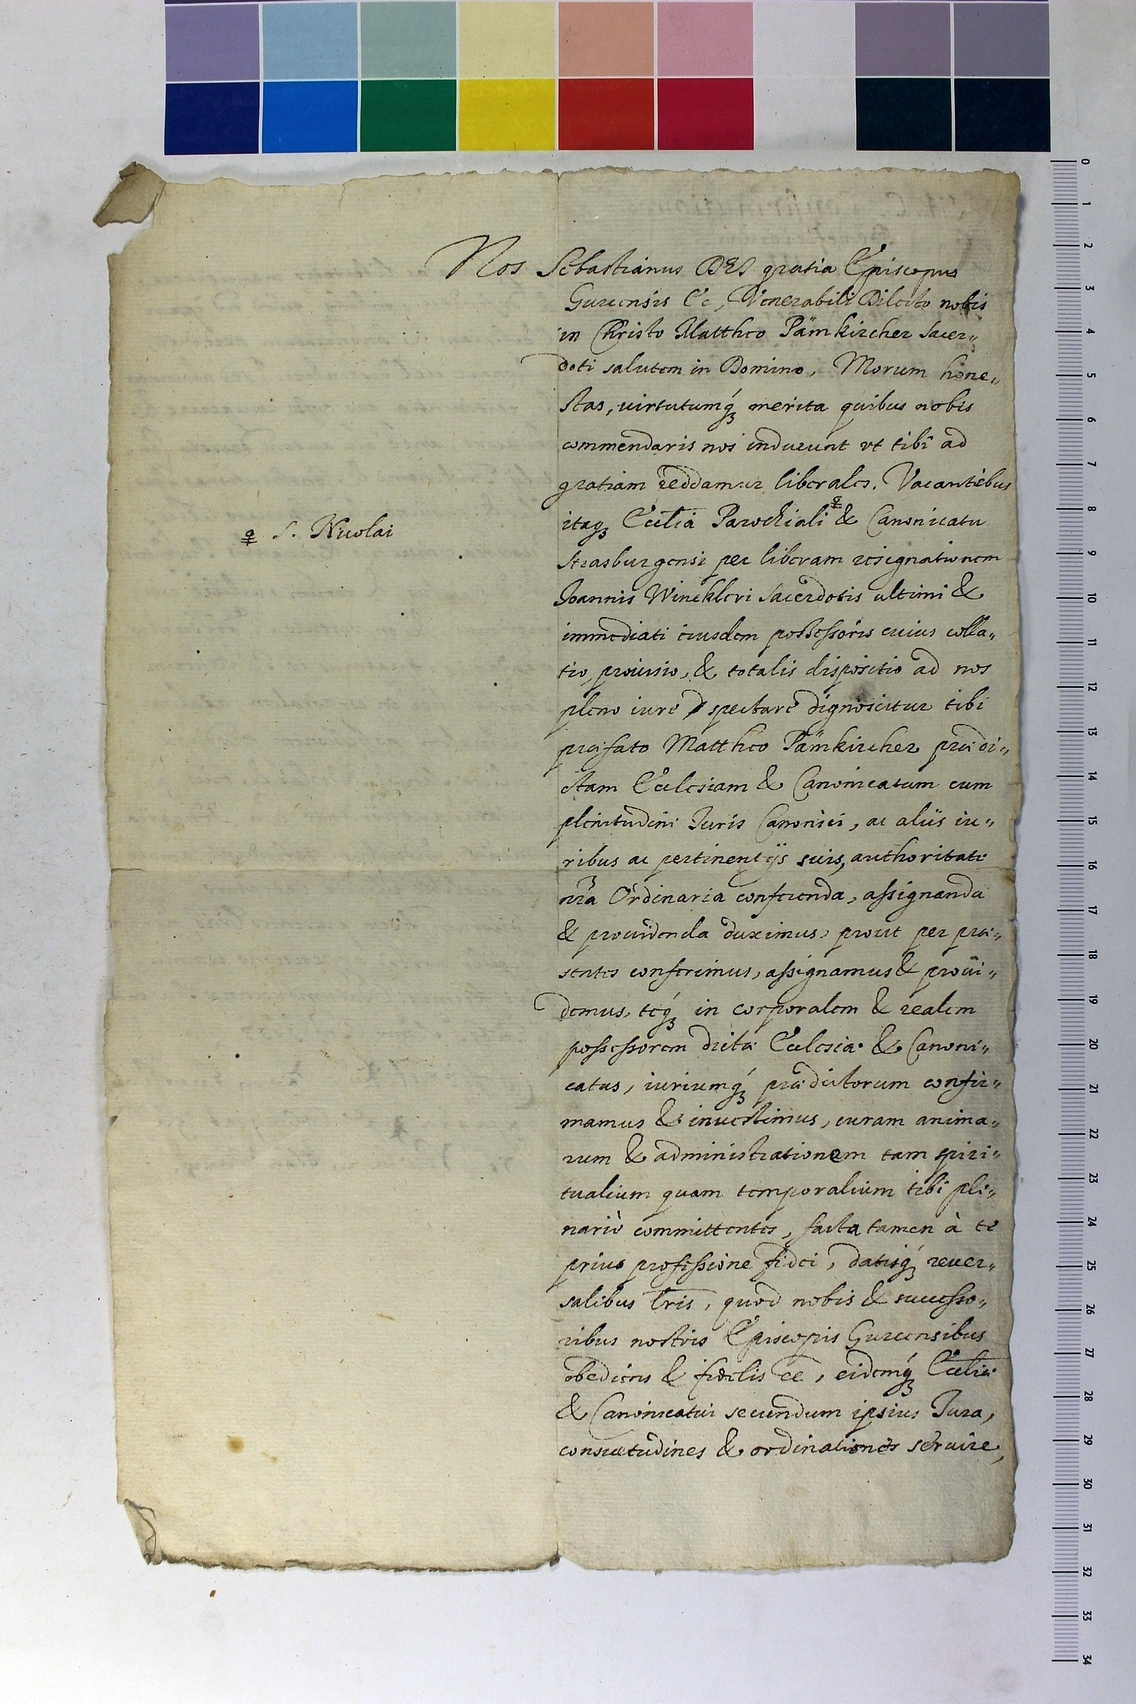 Nos Sebastianus DEI gratia Episcopus
Gurcensis &c, Venerabili Dilecto nobis
in Christo Mattheo Pämkircher Sacer„
doti salutem in Domino. Morum hone„
stas, uirtutumq́ꝫ merita quibus nobis
commendaris nos inducunt vt tibi ad
gratiam reddamur liberales. Vacantibus
itaqꝫ Eccl̃ia Parochiali & Canonicatu
S. Nicolai
Strasburgensi per liberam resignationem
Joannis Winckleri Sacerdotis ultimi &
immediati eiusdem possessoris cuius colla„
tio, prouisio, & totalis dispositio ad nos
pleno iure spectare dignoscitur tibi
præfato Mattheo Pämkircher prædi„
ctam Ecclesiam & Canonicatum cum
plenitudine Juris Canonici, ac alijs iu„
ribus ac pertinentijs suis, authoritate
nr̃a Ordinaria conferenda, assignanda
& prouidenda duximus, prout per præ„
sentes conferimus, assignamus & proui„
demus, teq́ꝫ in corporalem & realem
possessorem dictæ Ecclesiæ & Canoni„
catus, iuriumq́ꝫ prædictorum confir„
mamus & inuestimus, curam anima„
rum & administrationem tam spiri„
tualium quam temporalium tibi ple„
nariè committentes, facta tamen à te
prius professione fidei, datisq́ꝫ reuer„
salibus l̃ris, quod nobis & successo„
ribus nostris Episcopis Gurcensibus
obediens & fidelis ee̅, eidemq́ꝫ Eccl̃iæ
& Canonicatui secundum ipsius Jura,
consuetudines & ordinationes seruire,